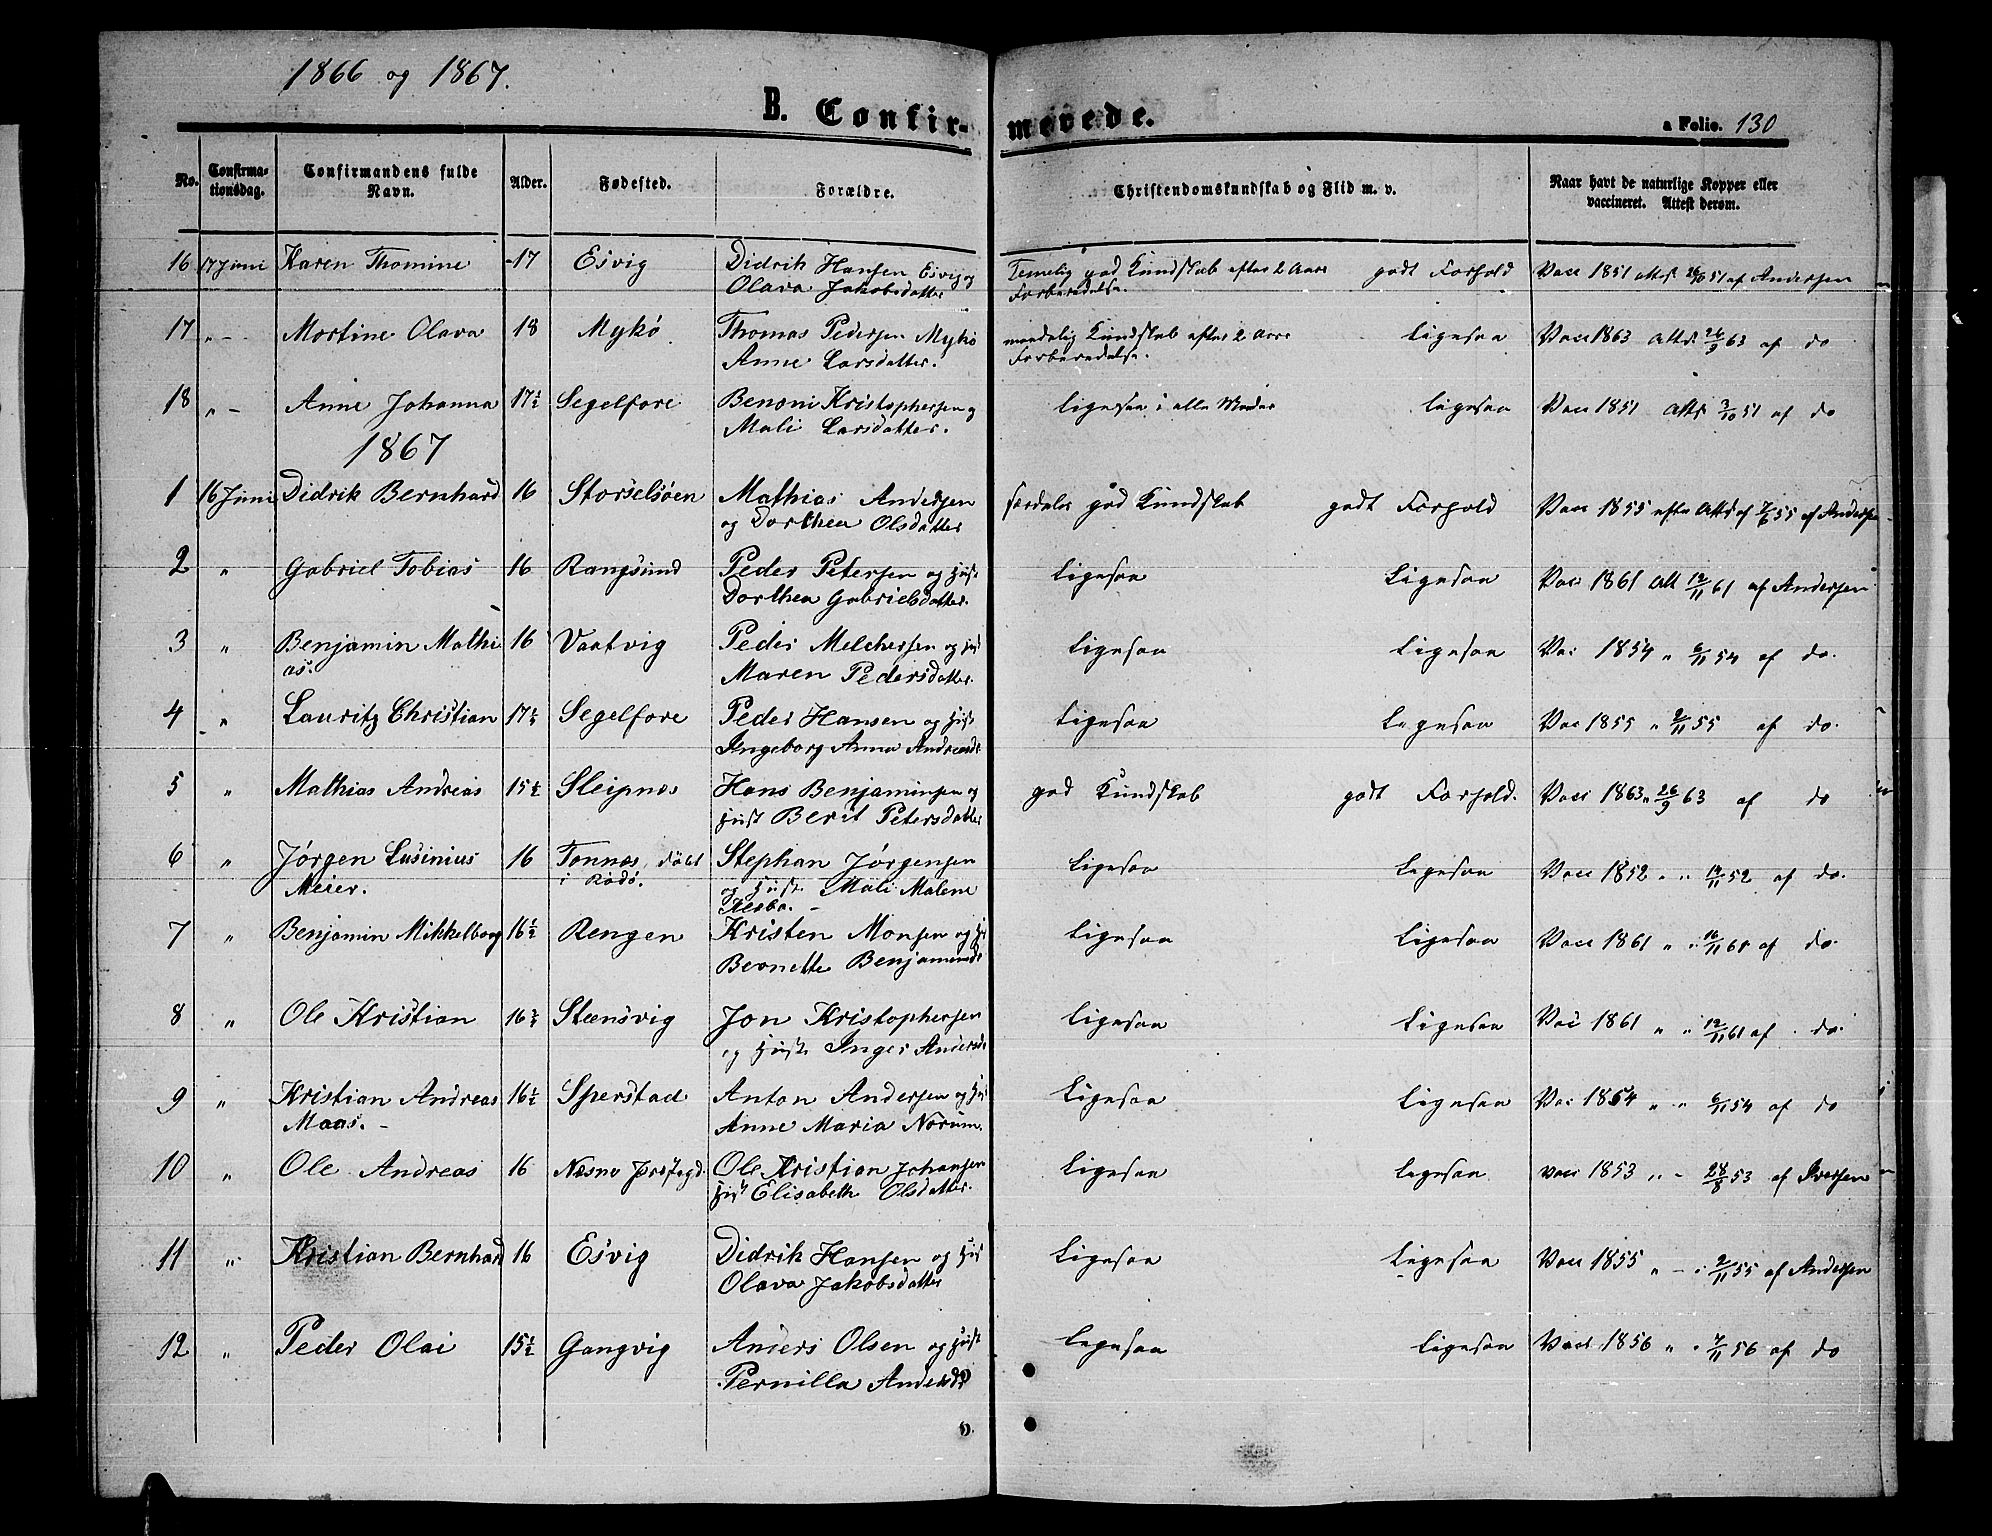 1866 og 1867.
B. Confirmerede.
a Folio. 130
No. Confirmationsdag. Confirmandens fulde Navn. Alder. Fødested. Forældre. Christendomskundskab og Flid m. v. Naar havt de naturlige Kopper eller vaccineret. Attest derom.
16 17 Juni Karen Thomine 17 Esvig Didrik Hansen Esvig og Temelig god Kundskab efter 2 Aars godt Forhold Vacc 1851 51 af Andersen
Olava Jakobsdatter Forberedelse.
17 " - Martine Olava 18 Mykø Thomas Pedersen Mykø maadelig Kundskab efter 2 Aars Ligesaa Vacc 1863 Atts 26/9 63 af do
Anne Larsdatter. Forberedelse.
18 " - Anne Johanna 17½ Segelfore Benoni Kristophersen og Ligesaa i alle Maader Ligesaa Vacc 1851 Atts 3/10 51 af do
Mali Larsdatter.
1867
1 16 Juni Didrik Bernhard 16 Storselsøen Mathias Andersen særdeles god Kundskab godt Forhold Vacc 1855 efter Atts af 7/6 55 af Andersen
og Dorthea Olsdatter
2 " Gabriel Tobias 16 Rangsund Peder Petersen og Hust Ligesaa Ligesaa Vacc 1861 Att 12/11 61 af Andersen
Dorthea Gabrielsdatter.
3 " Benjamin Mathi 16 Vaatvig Peder Melchersen og Hust Ligesaa Ligesaa Vac 1854 " 6/11 54 af do.
as. Maren Pedersdatter.
4 " Lauritz Christian 17½ Segelfore Peder Hansen og Hust Ligesaa Ligesaa Vac 1855 " 2/11 55 af do
Ingeborg Anna Andreasd
5 " Mathias Andreas 15½ Sleipnes Hans Benjaminsen og god Kundskab godt Forhold. Vacc 1863 " 26/9 63 af do
Hust Berit Petersdatter
6 " Jørgen Lusinius 16 Tonnes, døbt Stephan Jørgensen Ligesaa Ligesaa Vacc 1852 " " 14/11 52 af do.
Meier. i Rødø. og Hust. Mali Malene
7 " Benjamin Mikkelborg 16½ Rengen Kristen Monsen og H Ligesaa Ligesaa Vacc 1861 " " 16/11 61 af do.
Bernette Benjaminsd
8 " Ole Kristian 16¾ Steensvig Jon Kristophersen Ligesaa Ligesaa Vac 1861 " " 12/11 61 af do.
og Hust. Inger Andersd
9 " Kristian Andreas 16½ Sperstad Anton Andersen og Hust Ligesaa Ligesaa Vac 1854 " " 6/11 54 af do
Maas. - Anne Maria Norum.
10 " Ole Andreas 16 Næsne Præstegd. Ole Kristian Johansen Ligesaa Ligesaa vacc 1853 " - 28/8 53 af Iversen
Hust Elisabeth Olsdatter.
11 " Kristian Bernhard 16 Esvig Didrik Hansen og Hust Ligesaa Ligesaa Vacc 1855 " - 2/11 55 af Andersen
Olava Jakobsdatter
12 " Peder Olai 15½ Gangvig Anders Olsen og Hust Ligesaa Ligesaa Vacc 1856 " " 7/11 56 af do
Pernilla Andersd